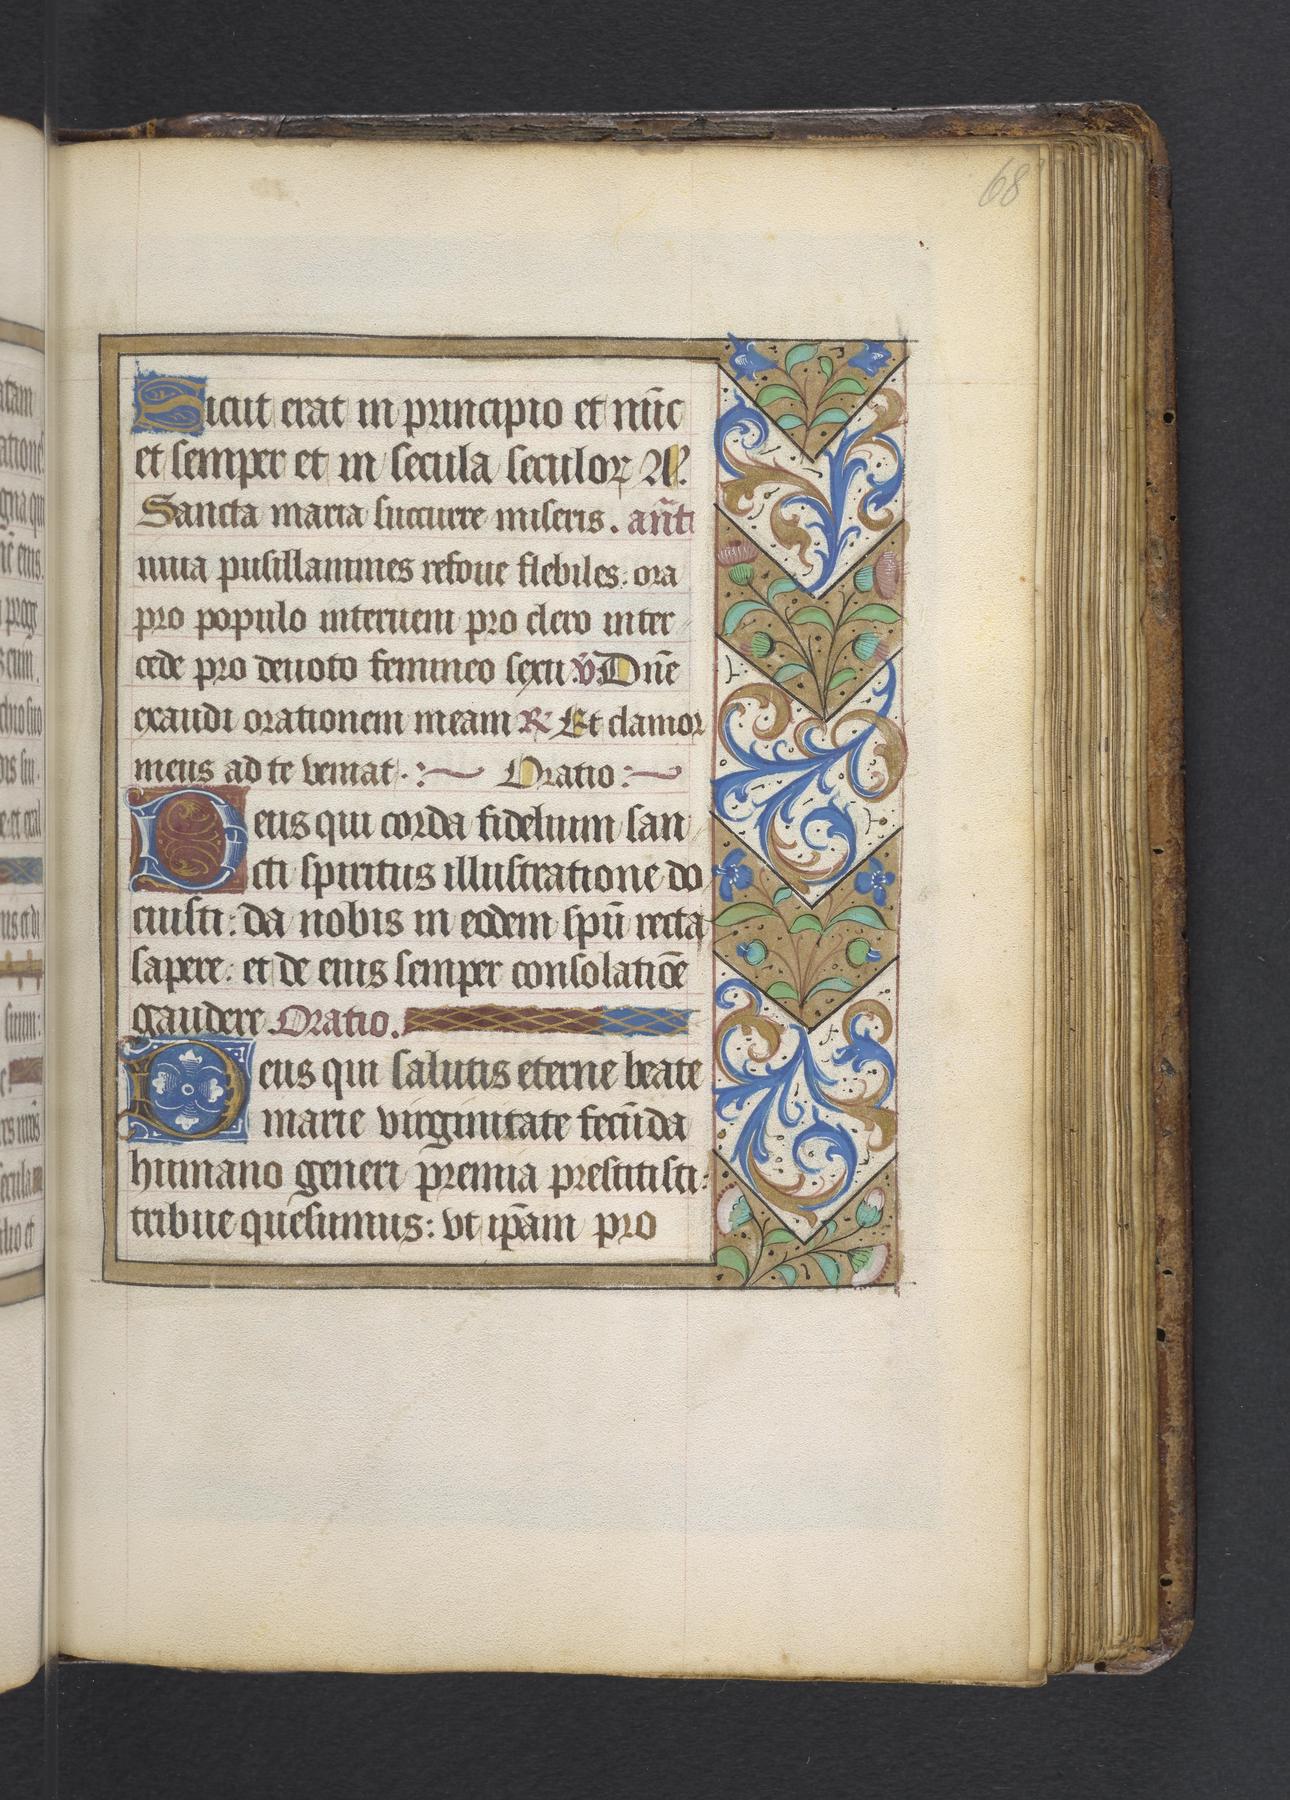 68
Sicut erat in principio et nūc
et semper et in secula seculoꝝ A̅.
Sancta maria succurre miseris. añt
iuua pusillanimes refoue flebiles: ora
pro populo interueni pro clero inter
cede pro deuoto femineo sexu ℣ Dn̄e
exaudi orationem meam ℟ Et clamor
meus ad te veniat. Oratio:
Deus qui corda fidelium san
cti spiritus illustratione do
cuisti: da nobis in eodem spū recta
sapere: et de eius semper consolatiōe
gaudere. Oratio.
Deus qui salutis eterne beate
marie virginitate fecūda
humano generi premia prestitisti:
tribue quesumus: vt ip̄am pro